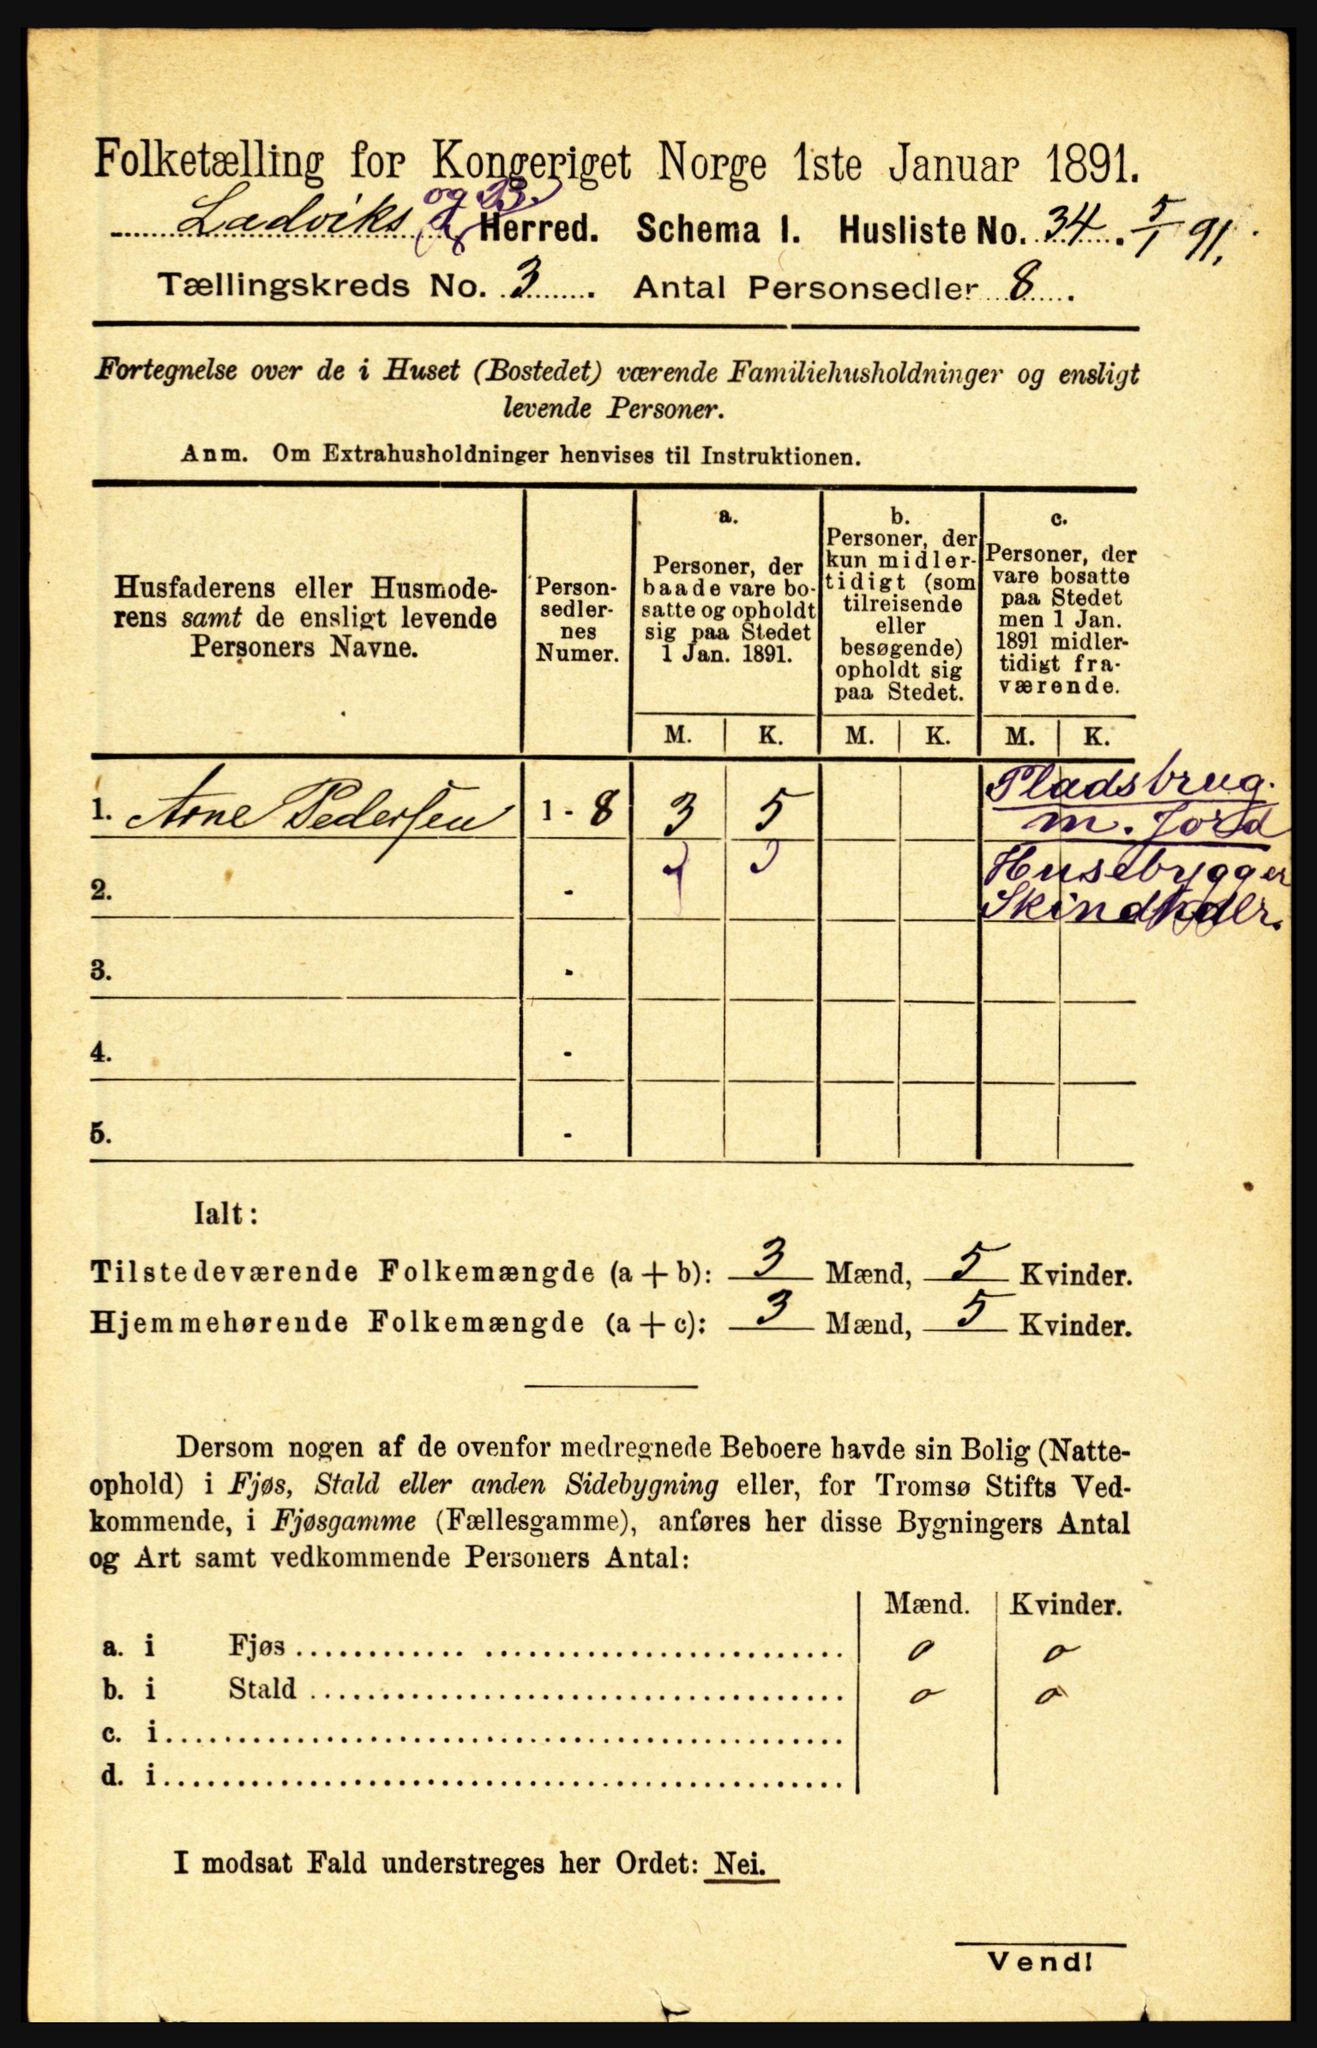 Folketælling for Kongeriget Norge 1ste Januar 1891.
og B.
Ladviks Herred. Schema I. Husliste No. 34. 5/1 91.
Tællingskreds No. 3. Antal Personsedler 8.
Fortegnelse over de i Huset (Bostedet) værende Familiehusholdninger og ensligt
levende Personer.
Anm. Om Extrahusholdninger henvises til Instruktionen.
Husfaderens eller Husmode-
rens samt de ensligt levende
Personers Navne.
Person-
sedler-
nes
Numer.
a.
Personer, der
baade vare bo-
satte og opholdt
sig paa Stedet
1 Jan. 1891.
b.
Personer, der
kun midler-
tidigt (som
tilreisende
eller
besøgende)
opholdt sig
paa Stedet.
c.
Personer, der
vare bosatte
paa Stedet
men 1 Jan.
1891 midler-
tidigt fra-
værende.
M. K. M. K. M. K.
1. Arne Pedersen 1 - 8 3 5
Pladsbrug.
m. Jord
2. -
Husebygger
Skindhdlr.
3. -
4. -
5. -
Ialt:
Tilstedeværende Folkemængde (a + b): 3 Mænd, 5 Kvinder.
Hjemmehørende Folkemængde (a + c): 3 Mænd, 5 Kvinder.
Dersom nogen af de ovenfor medregnede Beboere havde sin Bolig (Natte-
ophold) i Fjøs, Stald eller anden Sidebygning eller, for Tromsø Stifts Ved-
kommende, i Fjøsgamme (Fællesgamme), anføres her disse Bygningers Antal
og Art samt vedkommende Personers Antal:
Mænd. Kvinder.
a. i Fjøs 0 0
b. i Stald 0 0
c. i
d. i
I modsat Fald understreges her Ordet: Nei.
Vend!